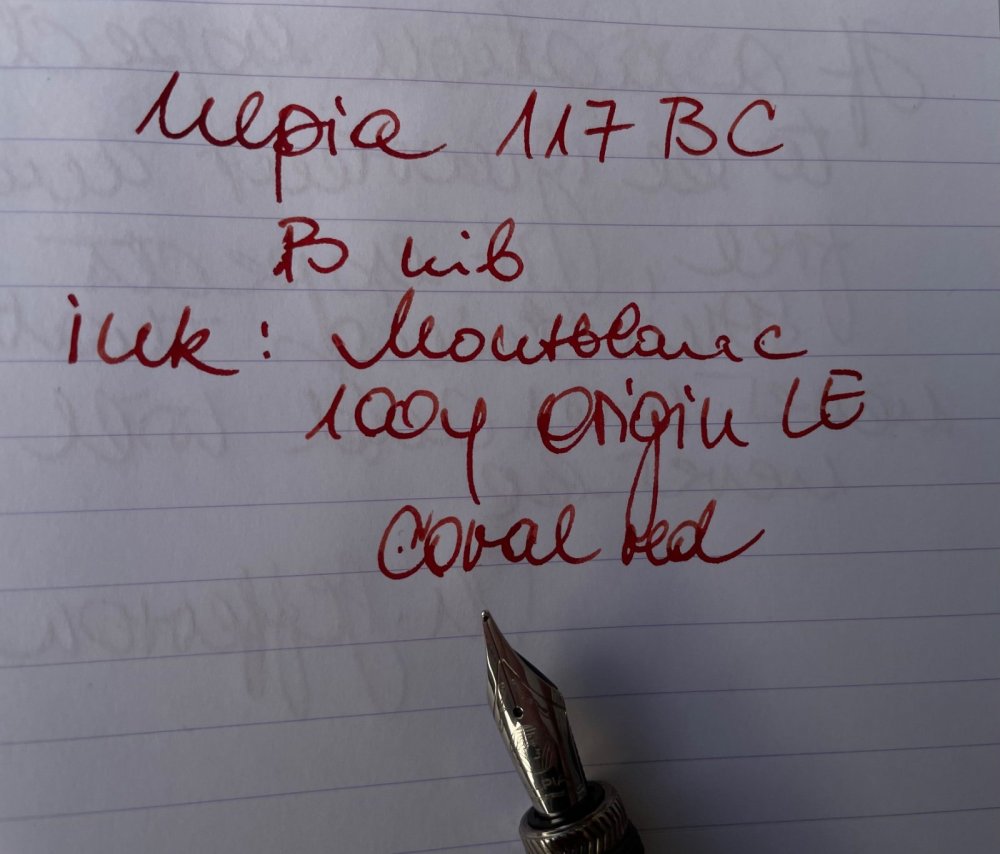 Nepia 117 BC
B nib
ink: Montblanc
100y Origin LE
Coral red